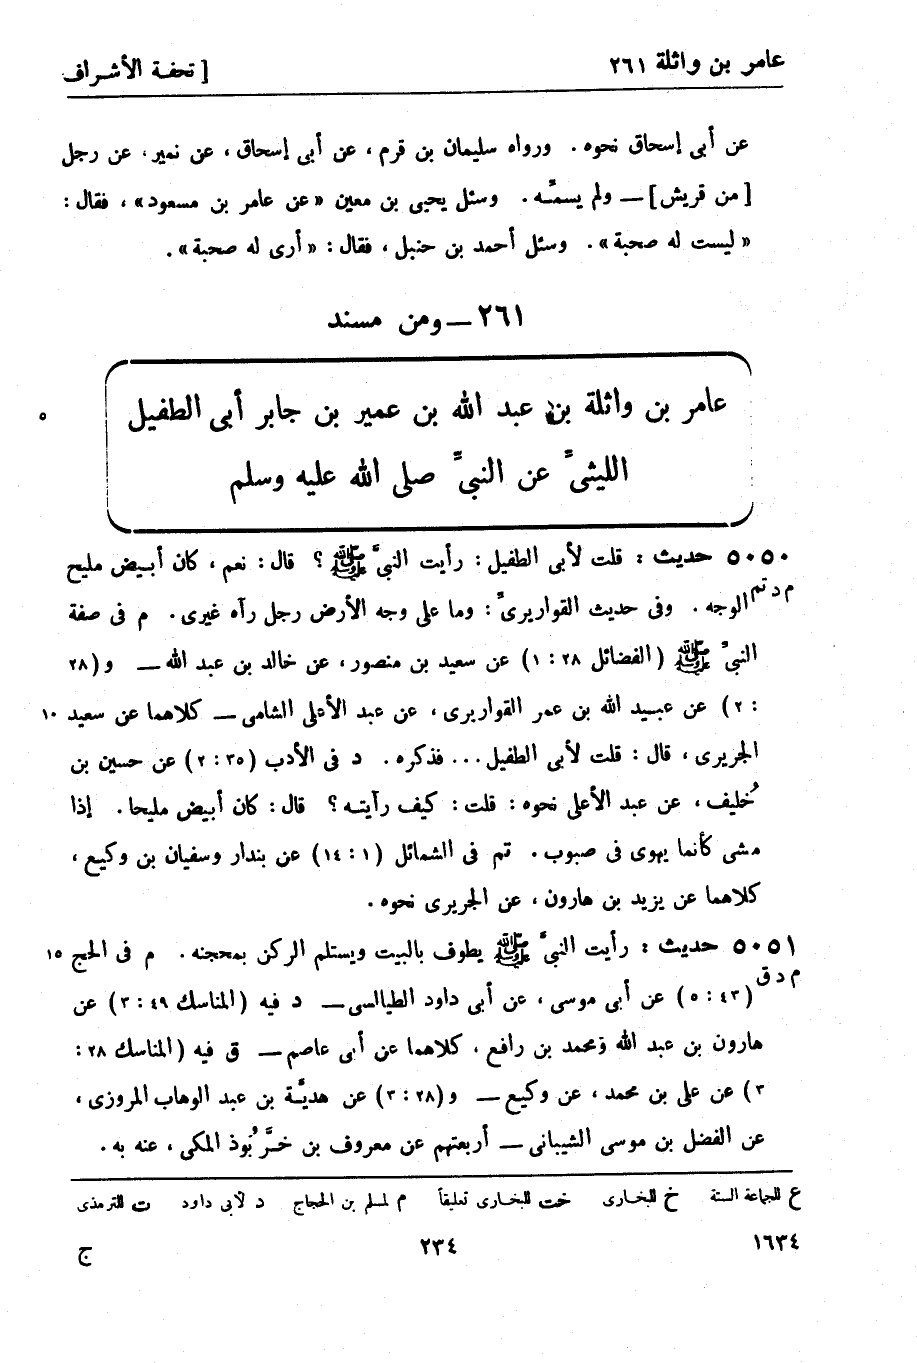 عامر بن واثلة ٢٦١
[ تحفة الأشراف
عن أبى إسحاق نحوه . ورواه سليمان بن قرم ، عن أبى إسحاق ، عن نمير ، عن رجل
[ من قريش ] — ولم يسمّه . وسئل يحيى بن معين « عن عامر بن مسعود » ، فقال :
« ليست له صحبة » . وسئل أحمد بن حنبل ، فقال : « أرى له صحبة » .
٢٦١ — ومن مسند
عامر بن واثلة بن عبد الله بن عمير بن جابر أبى الطفيل
٥
الليثىّ عن النبىّ صلى الله عليه وسلم
٥٠٥٠ حديث : قلت لأبى الطفيل : رأيت النبىّ ﷺ ؟ قال : نعم ، كان أبيض مليح
م د تم
الوجه . وفى حديث القواريرىّ : وما على وجه الأرض رجل رآه غيرى . م فى صفة
النبىّ ﷺ ( الفضائل ٢٨ : ١ ) عن سعيد بن منصور ، عن خالد بن عبد الله — و ( ٢٨
: ٢ ) عن عبيد الله بن عمر القواريرى ، عن عبد الأعلى الشامى — كلاهما عن سعيد ١٠
الجريرى ، قال : قلت لأبى الطفيل ... فذكره . د فى الأدب ( ٣٥ : ٢ ) عن حسين بن
خُليف ، عن عبد الأعلى نحوه : قلت : كيف رأيته ؟ قال : كان أبيض مليحا . إذا
مشى كأنما يهوى فى صبوب . تم فى الشمائل ( ١ : ١٤ ) عن بندار وسفيان بن وكيع ،
كلاهما عن يزيد بن هارون ، عن الجريرى نحوه .
٥٠٥١ حديث : رأيت النبىّ ﷺ يطوف بالبيت ويستلم الركن بمحجنه . م فى الحج ١٥
م د ق
( ٤٣ : ٥ ) عن أبى موسى ، عن أبى داود الطيالسى — د فيه ( المناسك ٤٩ : ٣ ) عن
هارون بن عبد الله ومحمد بن رافع ، كلاهما عن أبى عاصم — ق فيه ( المناسك ٢٨ :
٣ ) عن على بن محمد ، عن وكيع — و ( ٢٨ : ٣ ) عن هديّة بن عبد الوهاب المروزى ،
عن الفضل بن موسى الشيبانى — أربعتهم عن معروف بن خرَّبُوذ المكى ، عنه به .
ع للجماعة الستة خ للبخارى خت للبخارى تعليقاً م لمسلم بن الحجاج د لأبى داود ت للترمذى
١٦٣٤
٢٣٤
ج